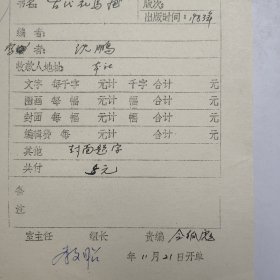 书名: 古代 版次:
出版时间: 1983年
编 者:
者: 沈鹏
收款人地址: 本社
文字 每千字 元计 千字 合计 元
图画 每 幅 元计 幅 合计 元
封面 每 幅 元计 幅 合计 元
编辑费 每 元计 合计 元
其他 封面题字
共付 5元
备
注
室主任 组长 责编
年 11月 21日开单